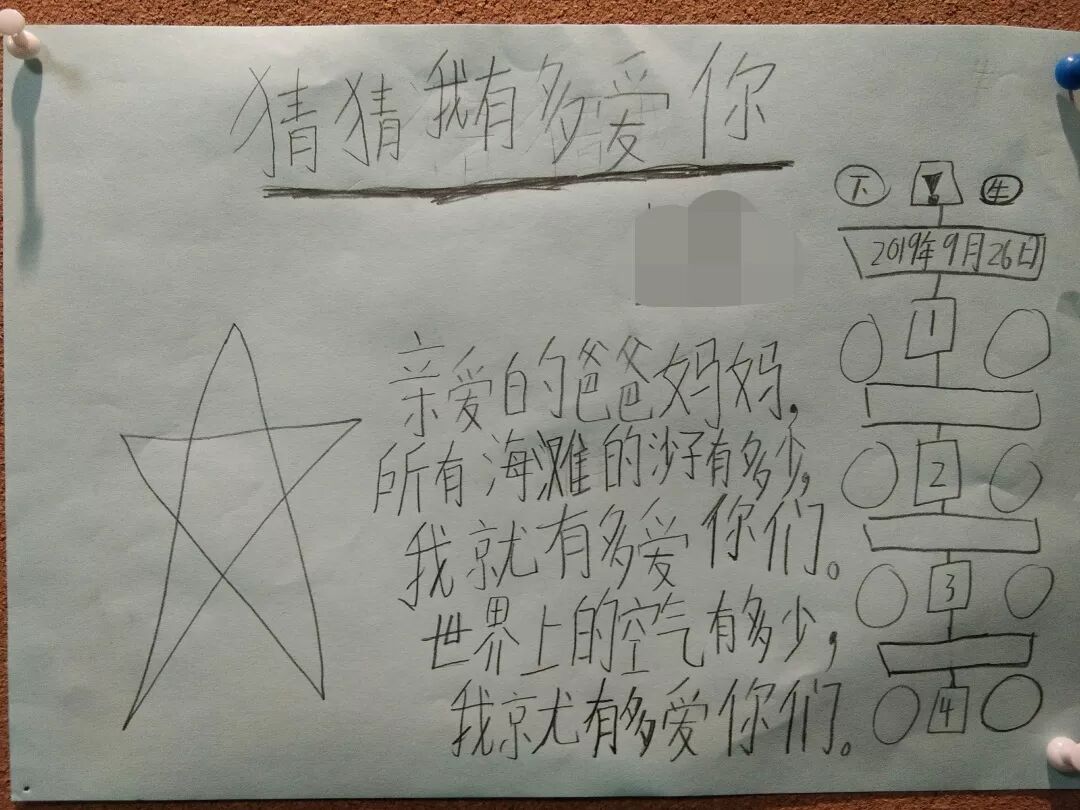 猜猜我有多爱你
下 生
2019年9月26日
1
亲爱的爸爸妈妈，
所有海滩的沙子有多少，
2
我就有多爱你们。
3
世界上的空气有多少，
我就有多爱你们。
4